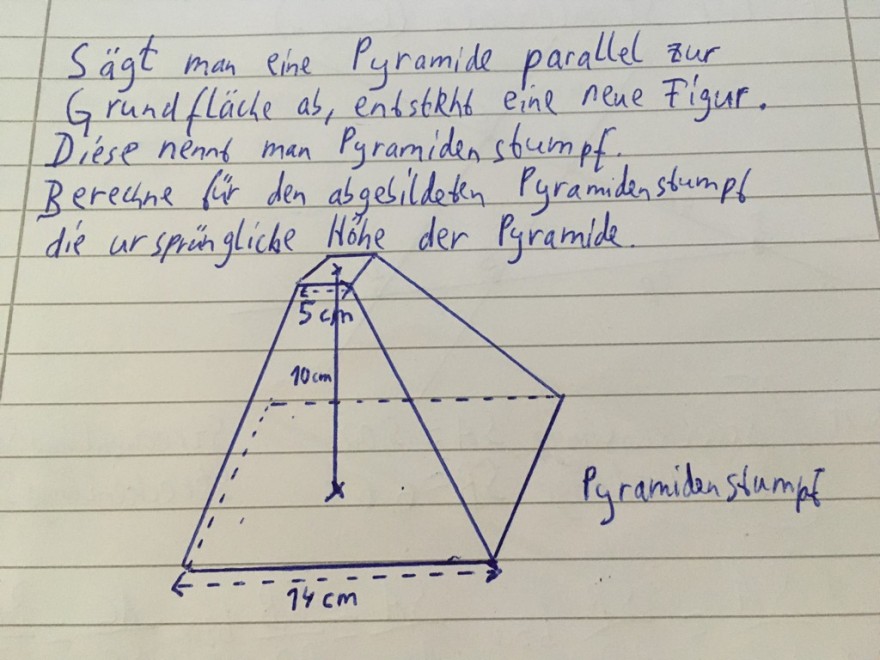 Sägt man eine Pyramide parallel zur
Grundfläche ab, entsteht eine neue Figur.
Diese nennt man Pyramidenstumpf.
Berechne für den abgebildeten Pyramidenstumpf
die ursprüngliche Höhe der Pyramide.
5 cm
10 cm
Pyramidenstumpf
14 cm